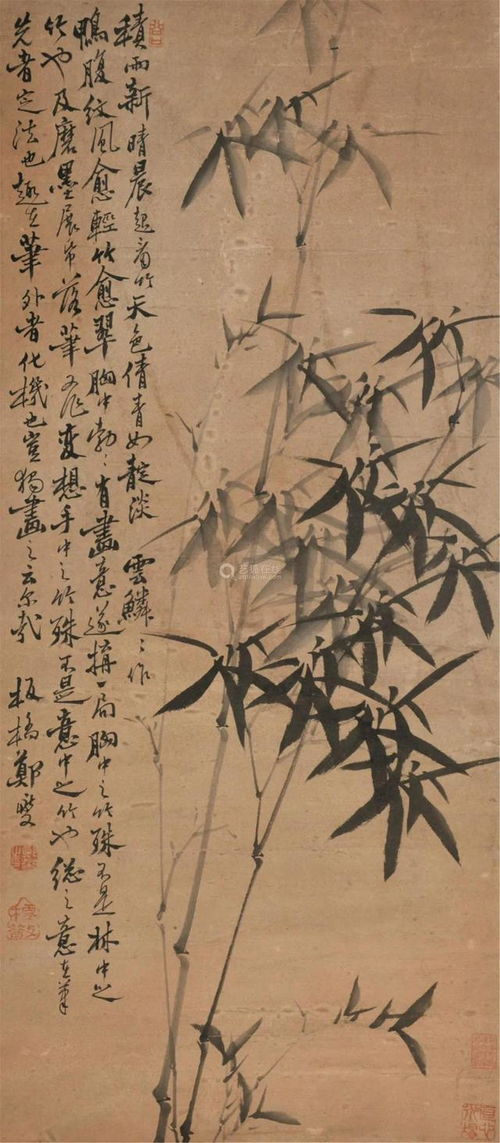 積雨新晴晨起看竹天色倩青如靛淡雲鱗〻作
鴨腹紋風愈輕竹愈翠胸中勃〻有畫意遂構一局胸中之竹殊不是林中之
竹也及磨墨展紙落筆又作變想手中之竹殊不是意中之竹也總之意在筆
先者定法也趣在筆外者化機也豈獨畫之云尔哉
板橋鄭燮